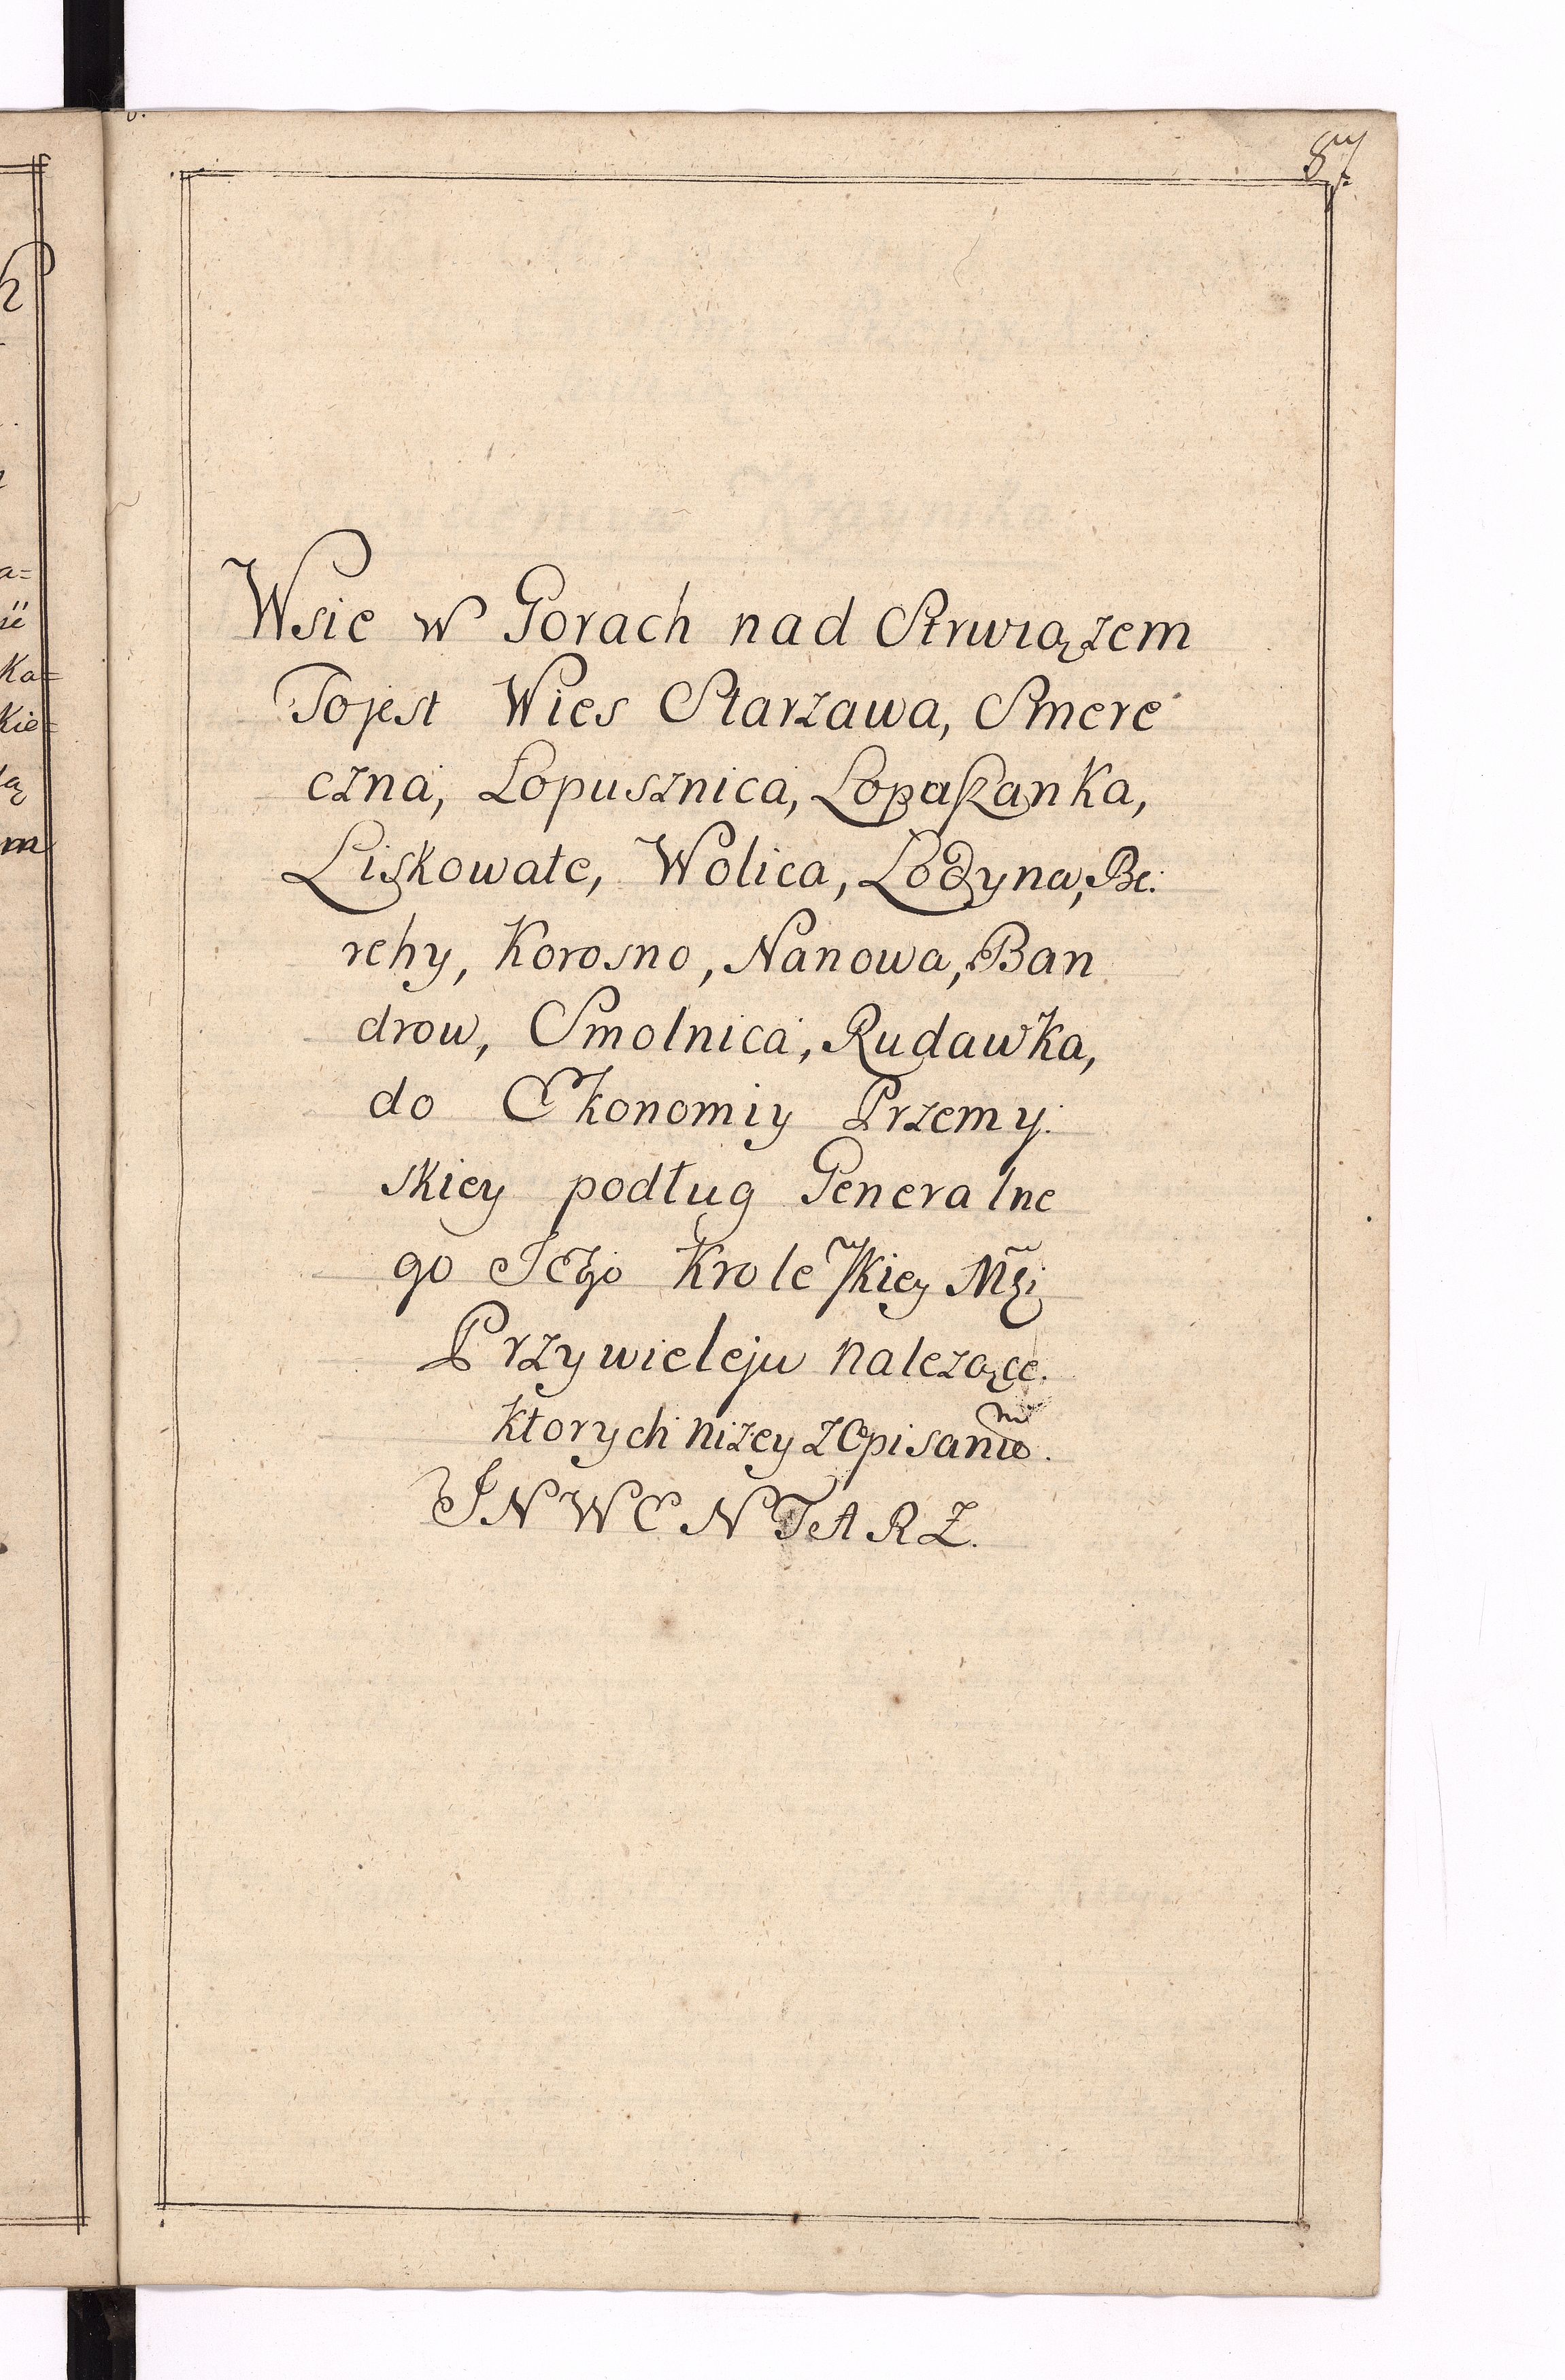 87
Wsie w Gorach nad Strwiązem
To jest Wies Starzawa, Smere
czna, Lopusznica, Lopuszanka,
Liskowate, Wolica, Lodyna, Be:
rehy, Korosno, Nanowa, Ban
drow, Smolnica, Rudawka,
do Ekonomiy Przemy:
skiey podług Generalne
go JEgo Krolewskiey Mści
Przywieleju nalezące.
ktorych nizey z Opisaniem.
INWENTARZ.